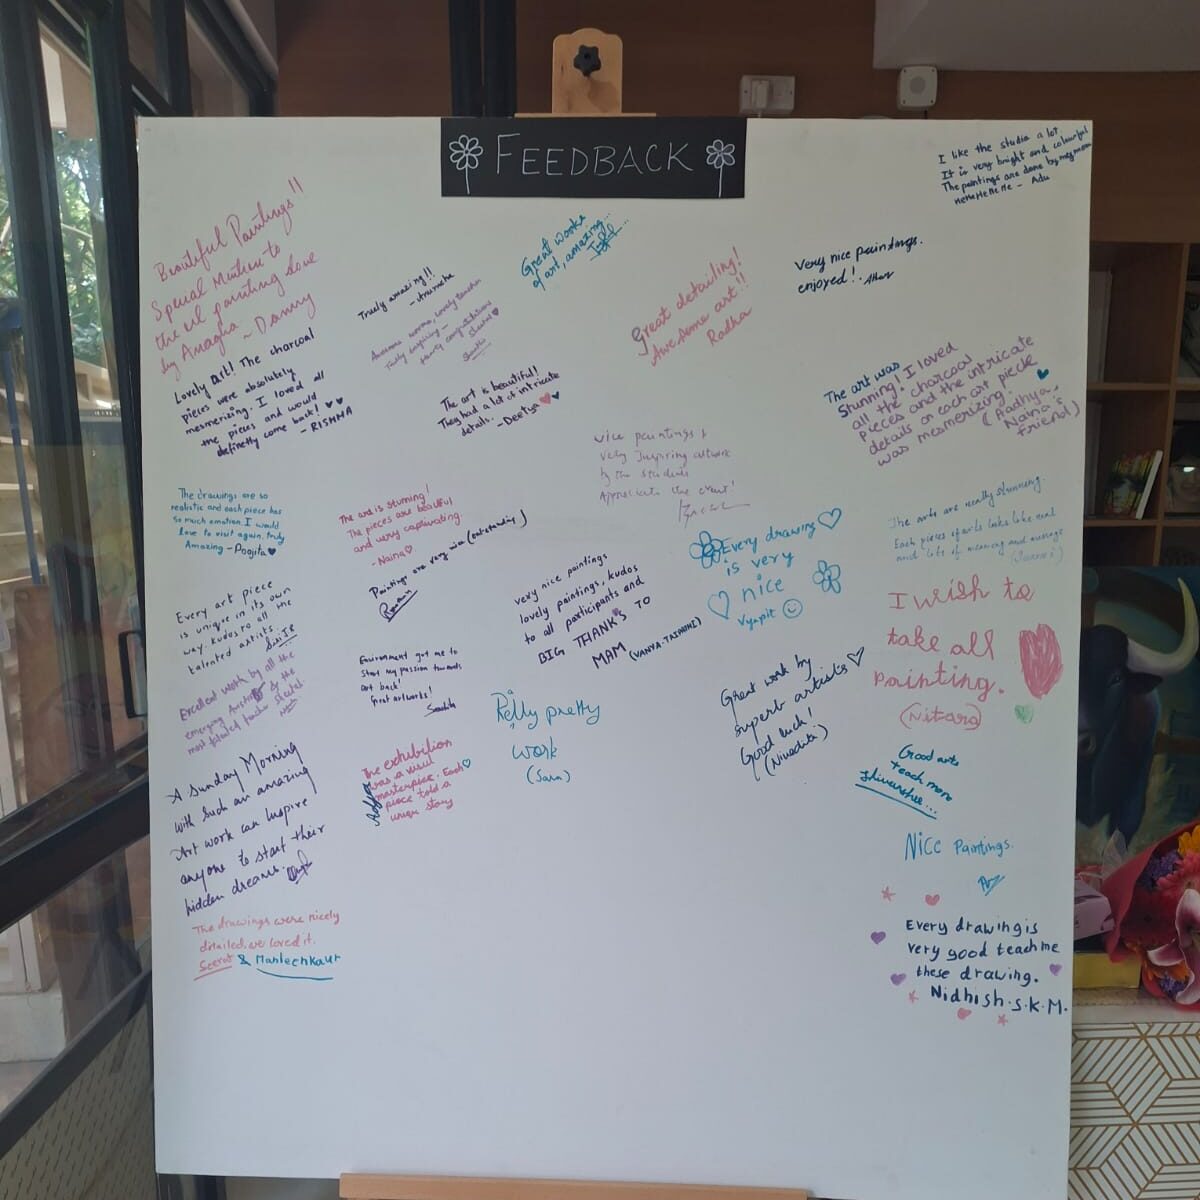 FEEDBACK
I like the studio a lot
It is very bright and colourful
The paintings are done by
Beautiful Paintings!!
Special Mention to
the oil painting done
by Amagha - Danny
Great works
of art, amazing...
Truly amazing!!
Awesome works, lovely teacher
Truly inspiring -
Hearty congratulations
Sheetal
Great detailing!
Awesome art!!
Radha
Very nice paintings.
enjoyed!
Lovely art! The charcoal
pieces were absolutely
mesmerizing. I loved all
the pieces and would
definetly come back!
- RISHMA
The art is beautiful!
They had a lot of intricate
details.
- Deetya
The art was
stunning! I loved
all the charcoal
pieces and the intricate
details on each art piece
was mesmerizing.
(Aadhya,
Naina's
friend)
nice paintings &
very Inspiring artwork
by the students
Appreciate the event!
The drawings are so
realistic and each piece has
so much emotion I would
love to visit again, truly
Amazing - Poojita
The art is stunning!
The pieces are beautiful
and very captivating.
- Naina
Paintings are very nice (outstanding)
Every drawing
is very
nice
Vyapit
The arts are really stunning
Each pieces of arts looks like real
and lots of meaning and message
very nice paintings
lovely paintings, kudos
to all participants and
BIG THANKS TO
MAM
Every art piece
is unique in its own
way. kudos to all the
talented artists.
I wish to
take all
painting.
(Nitara)
Environment got me to
start my passion towards
art back!
Great artworks!
Excellent work by all the
emerging & the
most talented teacher Sheetal.
Great work by
superb artists
Good luck!
(Nivedita)
Relly pretty
work
(Sara)
A Sunday Morning
with such an amazing
Art work can inspire
anyone to start their
hidden dreams.
The exhibition
was a visual
masterpiece. Each
piece told a
unique story
Good arts
teach more
Nice Paintings.
The drawings were nicely
detailed, we loved it.
Seerat & Manleenkaur
Every drawing is
very good teach me
these drawing.
Nidhish.S.K.M.